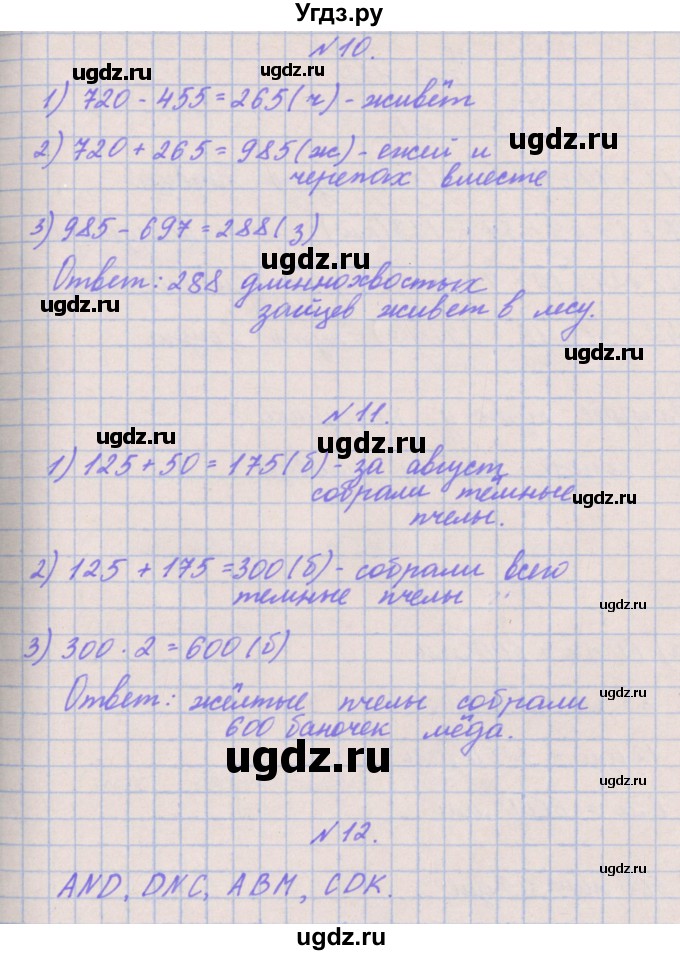 Угдз.ру
N10.
ugdz.ru ugdz.ru
1) 720 - 455 = 265 (ч) - живёт
ugdz.ru
2) 720 + 265 = 985 (ж) - ежей и
черепах вместе
3) 985 - 697 = 288 (з)
ugdz.ru
Ответ: 288 длиннохвостых
ugdz.ru
зайцев живет в лесу.
ugdz.ru
N11.
ugdz.ru ugdz.ru
1) 125 + 50 = 175 (б) - за август
собрали тёмные
ugdz.ru
пчелы.
2) 125 + 175 = 300 (б) - собрали всего
темные пчелы
ugdz.ru
3) 300 · 2 = 600 (б)
ugdz.ru
Ответ: жёлтые пчелы собрали
600 баночек мёда.
ugdz.ru
ugdz.ru
N12.
ugdz.ru
AND, DNC, ABM, CDK.
ugdz.ru